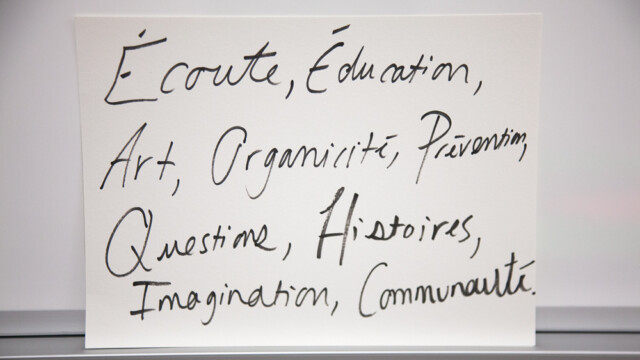 Écoute, Éducation,
Art, Organicité, Prévention,
Questions, Histoires,
Imagination, Communauté.